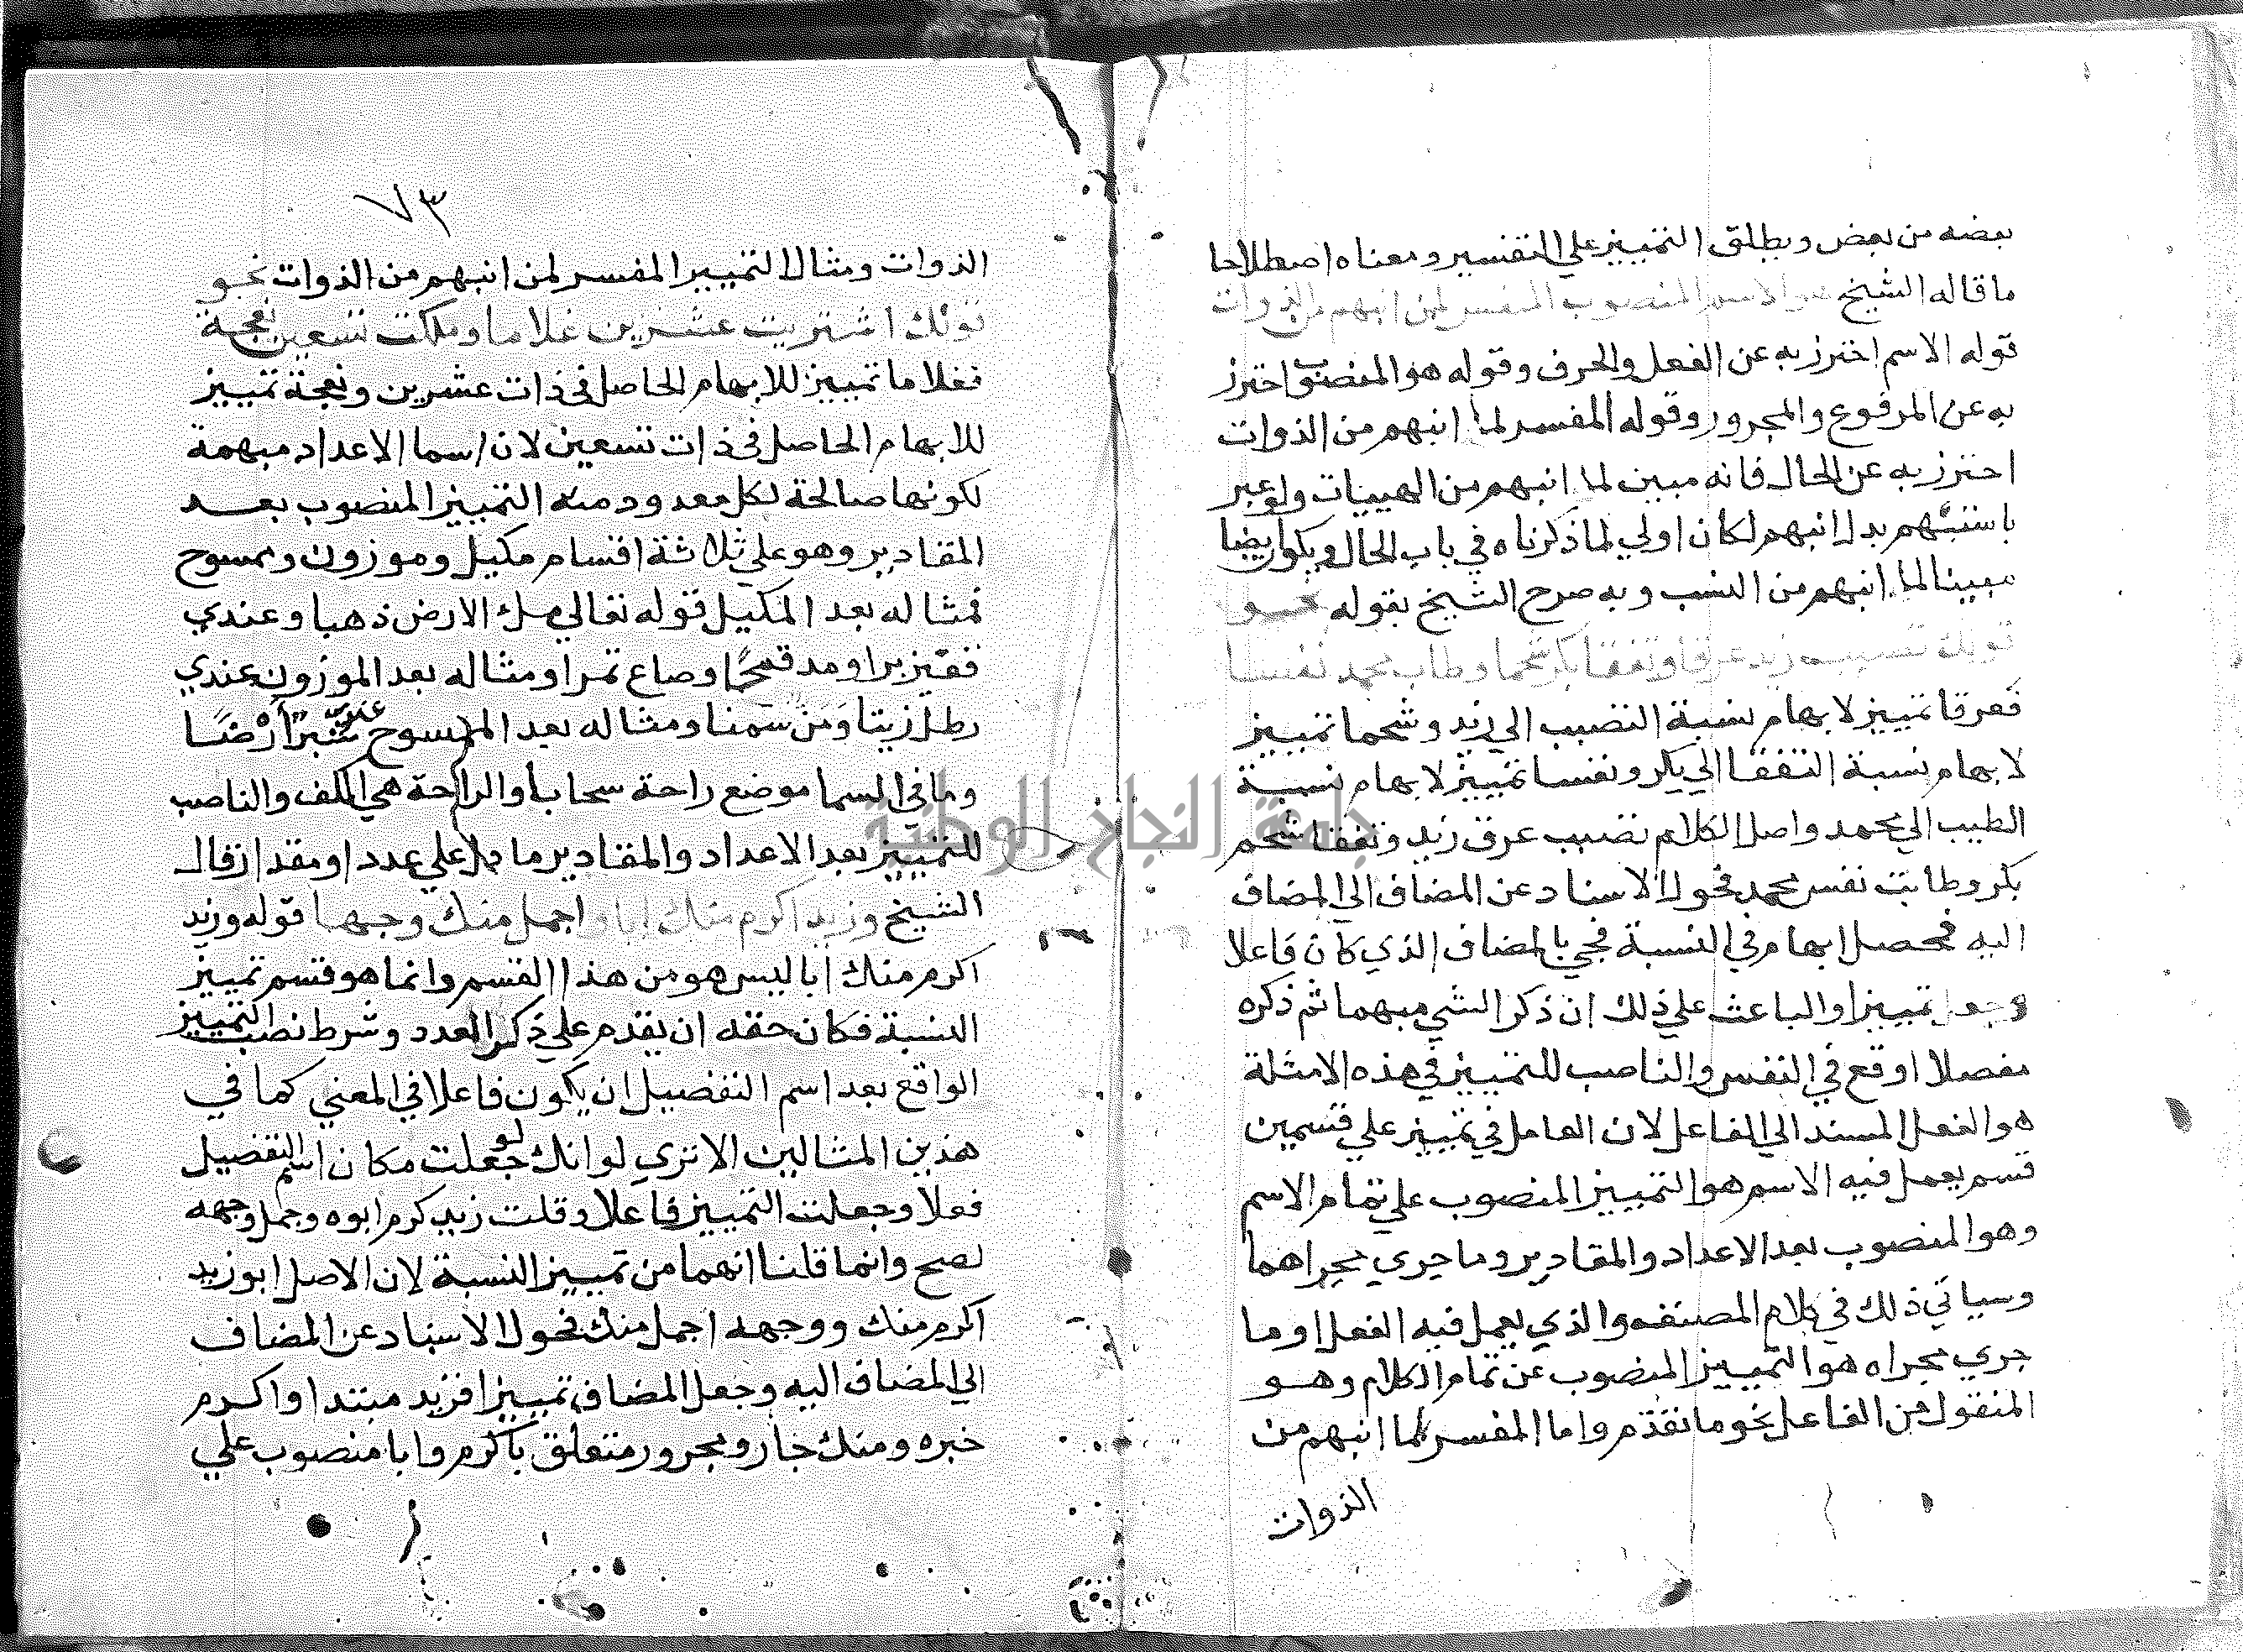 بعضه من بعض ويطلق التمييز علي التفسير ومعناه اصطلاحا
ما قاله الشيخ هو الاسم المنصوب المفسر لمن انبهم من الذوات
قوله الاسم احترز به عن الفعل والحرف وقوله هو المنصوب احترز
به عن المرفوع والمجرور وقوله المفسر لما انبهم من الذوات
احترز به عن الحال فانه مبين لما انبهم من الهييات ولو عبر
باستبهم بدل انبهم لكان اولي لما ذكرناه في باب الحال ويكون ايضا
مبينا لما انبهم من النسب وبه صرح الشيخ بقوله نحو
قولك تصبب زيد عرقا وتفقا بكر شحما وطاب محمد نفسا
فعرقا تمييز لابهام نسبة التصبب الي زيد وشحما تمييز
لابهام نسبة التفقا الي بكر ونفسا تمييز لابهام نسبة
الطيب الي محمد واصل الكلام تصبب عرق زيد وتفقا شحم
بكر وطابت نفس محمد فحول الاسناد عن المضاف الي المضاف
اليه فحصل ابهام في النسبة فجي بالمضاف الذي كان فاعلا
وجعل تمييزا والباعث علي ذلك ان ذكر الشي مبهما ثم ذكره
مفصلا اوقع في النفس والناصب للتمييز في هذه الامثلة
هو الفعل المسند الي الفاعل لان العامل في تمييز علي قسمين
قسم يعمل فيه الاسم هو التمييز المنصوب علي تمام الاسم
وهو المنصوب بعد الاعداد والمقادير وما جري مجراهما
وسياتي ذلك في كلام المصنف والذي يعمل فيه الفعل او ما
جري مجراه هو التمييز المنصوب عن تمام الكلام وهو
المنقول من الفاعل نحو ما تقدم واما المفسر لما انبهم من
الذوات
٧٣
الذوات ومثال التمييز المفسر لمن انبهم من الذوات نحو
قولك اشتريت عشرين غلاما وملكت تسعين نعجة
فغلاما تمييز للابهام الحاصل في ذات عشرين ونعجة تمييز
للابهام الحاصل في ذات تسعين لان اسما الاعداد مبهمة
لكونها صالحة لكل معدود ومنه التمييز المنصوب بعد
المقادير وهو علي ثلاثة اقسام مكيل وموزون وممسوح
فمثاله بعد المكيل قوله تعالي ملك الارض ذهبا وعندي
قفيز برا ومد قمحًا وصاع تمرا ومثاله بعد الموزون عندي
رطل زيتا ومن سمنا ومثاله بعد الممسوح عندي شبرا أرضا
وما في السما موضع راحة سحابا والراحة هي الكف والناصب
للتمييز بعد الاعداد والمقادير ما دل علي عدد او مقدار قال
الشيخ وزيد اكرم منك ابا واجمل منك وجها قوله وزيد
اكرم منك ابا ليس هو من هذا القسم وانما هو قسم تمييز
النسبة فكان حقه ان يقدم علي ذكر العدد وشرط نصب التمييز
الواقع بعد اسم التفضيل ان يكون فاعلا في المعني كما في
هذين المثالين الا تري لو انك لو جعلت مكان اسم التفضيل
فعلا وجعلت التمييز فاعلا وقلت زيد كرم ابوه وجمل وجهه
لصح وانما قلنا انهما من تمييز النسبة لان الاصل ابو زيد
اكرم منك ووجهه اجمل منك فحول الاسناد عن المضاف
الي المضاف اليه وجعل المضاف تمييزا فزيد مبتدا واكرم
خبره ومنك جار ومجرور متعلق باكرم وابا منصوب علي
جامعة النجاح الوطنية